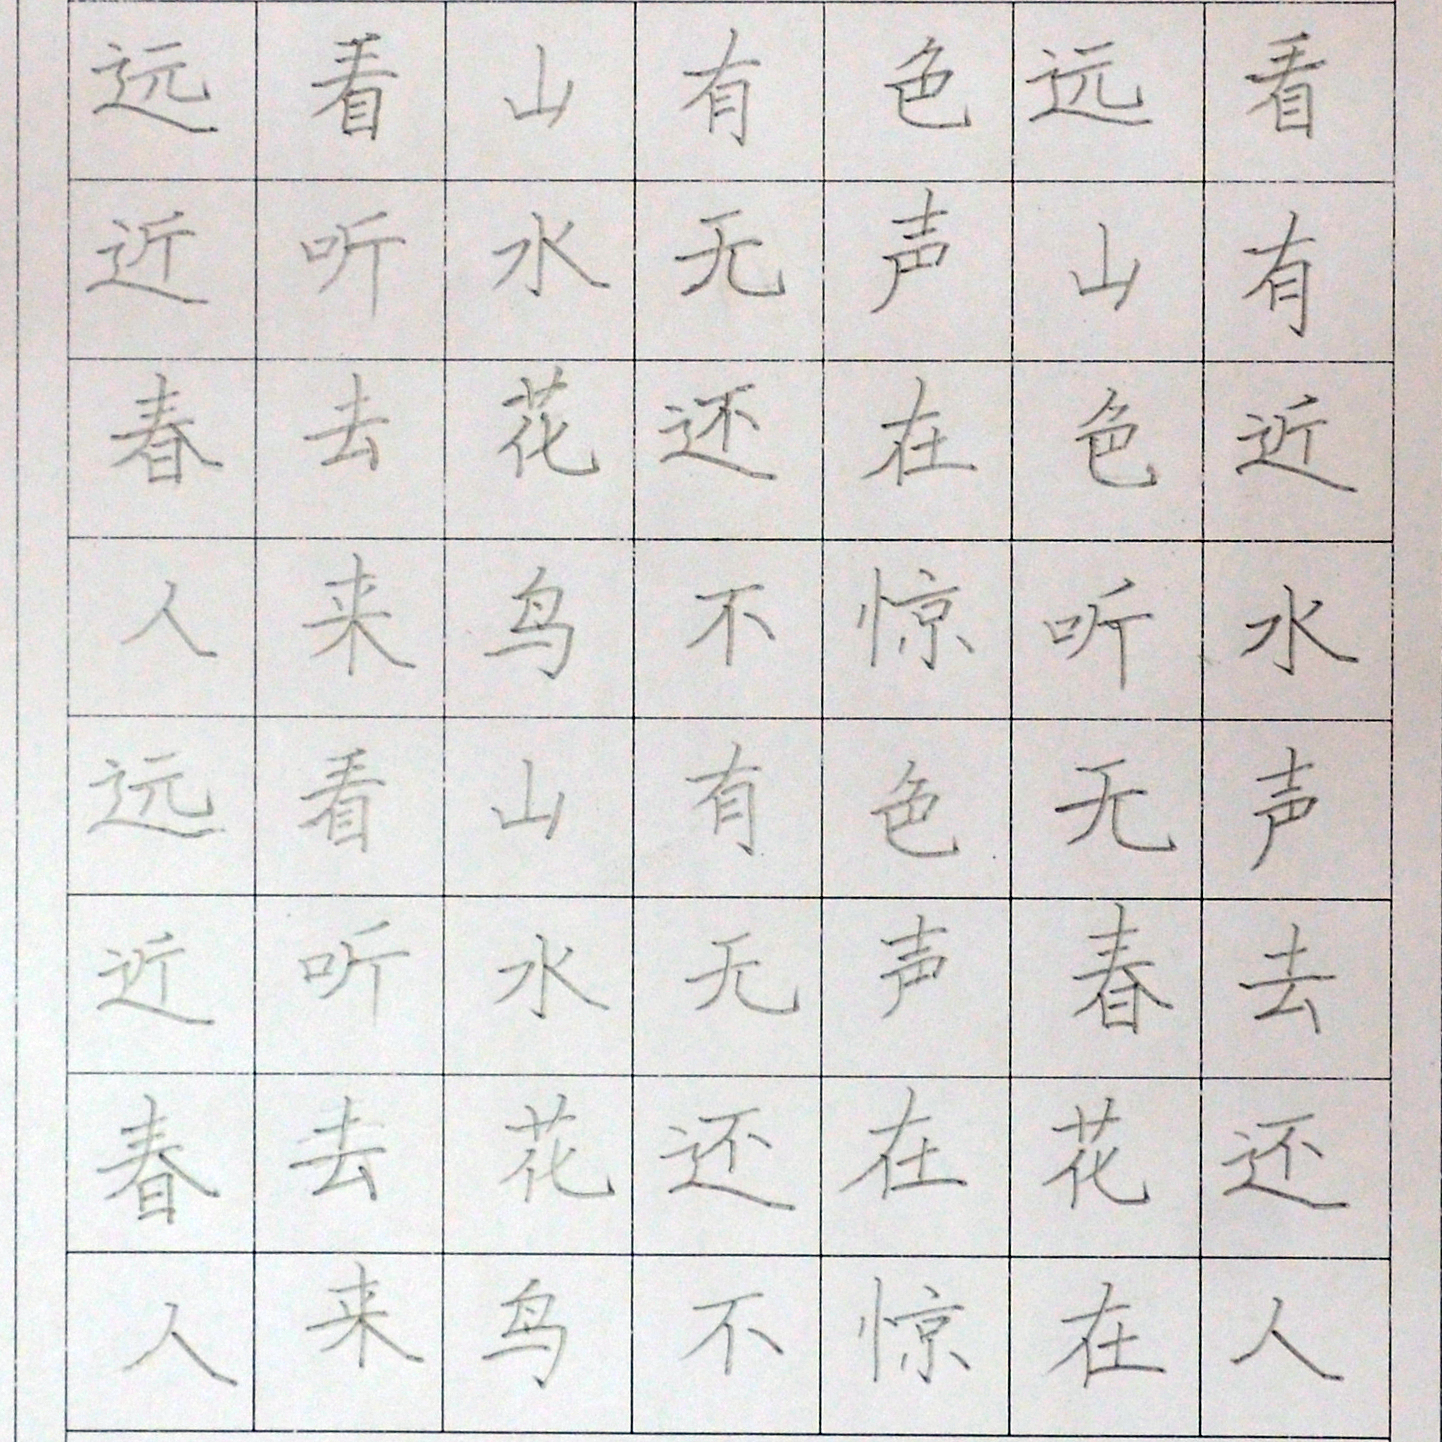 远看山有色远看
近听水无声山有
春去花还在色近
人来鸟不惊听水
远看山有色无声
近听水无声春去
春去花还在花还
人来鸟不惊在人